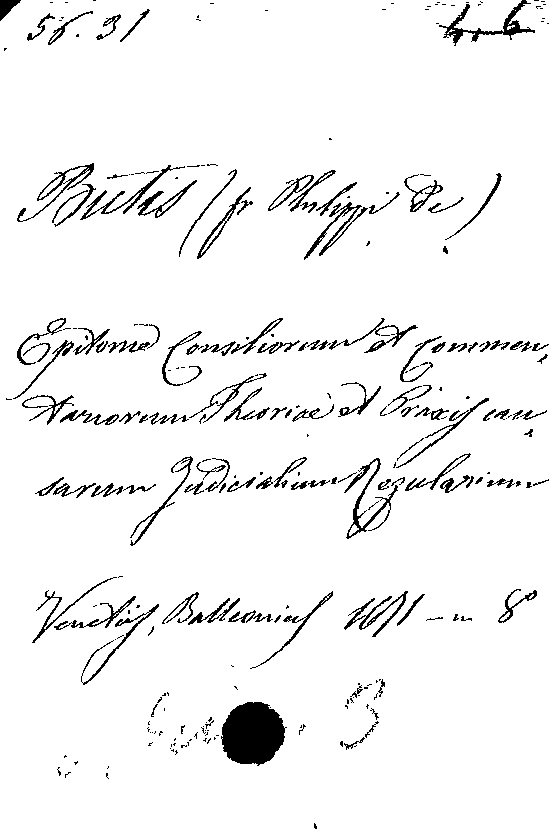 56. 31
4. 6
Butis (fr Philippi de)
Epitome Consiliorum et commen,
tariorum Theoricae et Praxis cau,
sarum Judicialium Regularium
Venetiis, Balleonius 1671 – in 8°
3